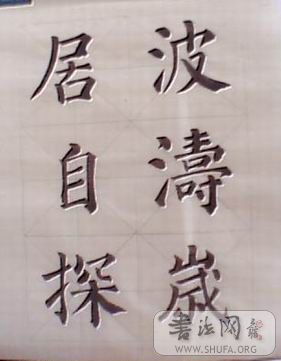 波濤歲
居自探
書法网
WWW.SHUFA.ORG